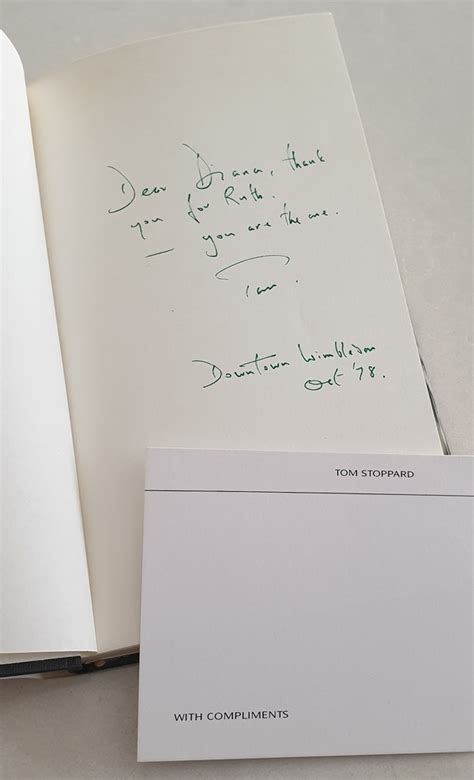 Dear Diana, thank
you for Ruth.
— you are the one.
Tom.
Downtown Wimbledon
Oct '78.
TOM STOPPARD
WITH COMPLIMENTS